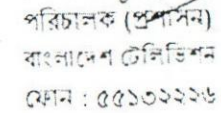 পরিচালক (প্রশাসন)
বাংলাদেশ টেলিভিশন
ফোন : ৫৫১৩২২২৬